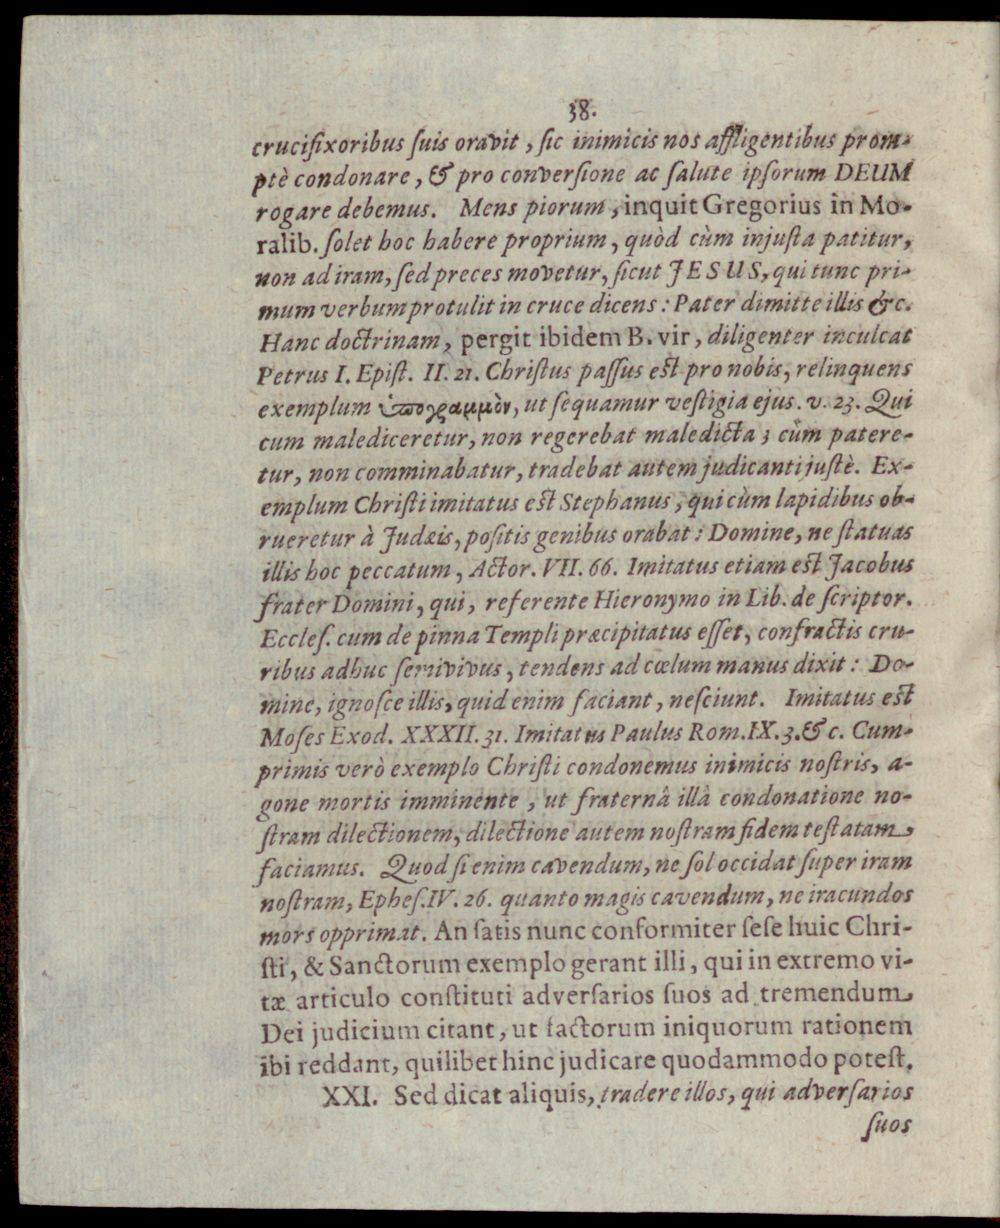 38.
crucifixoribus ſuis oravit, ſic inimicis nos affligentibus prom-
ptè condonare, & pro converſione ac ſalute ipſorum DEUM
rogare debemus. Mens piorum, inquit Gregorius in Mo-
ralib. ſolet hoc habere proprium, quòd cùm injuſta patitur,
non ad iram, ſed preces movetur, ſicut JESUS, qui tunc pri-
mum verbum protulit in cruce dicens: Pater dimitte illis &c.
Hanc doctrinam, pergit ibidem B. vir, diligenter inculcat
Petrus I. Epiſt. II. 21. Chriſtus paſſus eſt pro nobis, relinquens
exemplum ὑπογραμμὸν, ut ſequamur veſtigia ejus. v. 23. Qui
cum malediceretur, non regerebat maledicta; cùm patere-
tur, non comminabatur, tradebat autem judicanti juſtè. Ex-
emplum Chriſti imitatus eſt Stephanus, qui cùm lapidibus ob-
rueretur à Judæis, poſitis genibus orabat: Domine, ne ſtatuas
illis hoc peccatum, Actor. VII. 66. Imitatus etiam eſt Jacobus
frater Domini, qui, referente Hieronymo in Lib. de ſcriptor.
Eccleſ. cum de pinna Templi præcipitatus eſſet, confractis cru-
ribus adhuc ſemivivus, tendens ad cœlum manus dixit: Do-
mine, ignoſce illis, quid enim faciant, neſciunt. Imitatus eſt
Moſes Exod. XXXII. 31. Imitatus Paulus Rom. IX. 3. & c. Cum-
primis verò exemplo Chriſti condonemus inimicis noſtris, a-
gone mortis imminente, ut fraternâ illâ condonatione no-
ſtram dilectionem, dilectione autem noſtram fidem teſtatam
faciamus. Quod ſi enim cavendum, ne ſol occidat ſuper iram
noſtram, Epheſ. IV. 26. quanto magis cavendum, ne iracundos
mors opprimat. An ſatis nunc conformiter ſeſe huic Chri-
ſti, & Sanctorum exemplo gerant illi, qui in extremo vi-
tæ articulo conſtituti adverſarios ſuos ad tremendum
Dei judicium citant, ut factorum iniquorum rationem
ibi reddant, quilibet hinc judicare quodammodo poteſt.
XXI. Sed dicat aliquis, tradere illos, qui adverſarios
ſuos